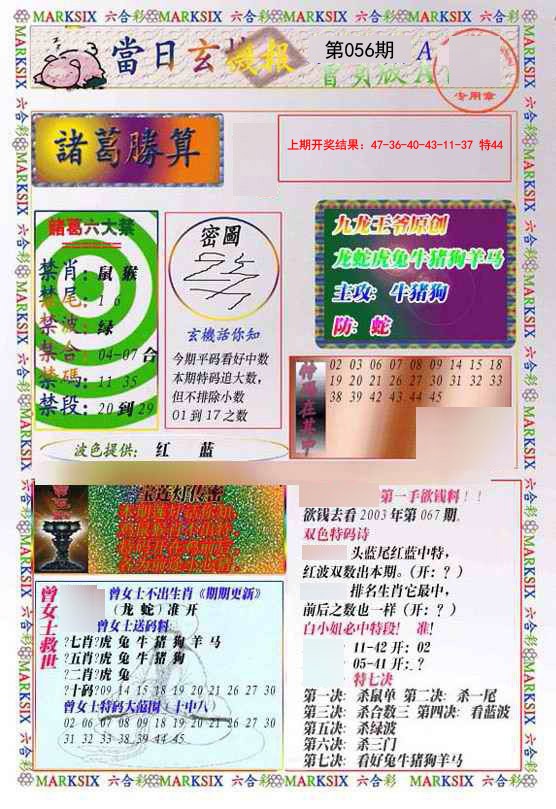 MARKSIX 六合彩 MARKSIX 六合彩 MARKSIX 六合彩 MARKSIX 六合彩
當日玄機报
第056期 A
专用章
諸葛勝算
上期开奖结果：47-36-40-43-11-37 特44
諸葛六大禁
禁肖：鼠 猴
禁尾：1 6
禁波：绿
禁合：04-07合
禁碼：11 35
禁段：20到29
密圖
玄機話你知
今期平码看好中数
本期特码追大数,
但不排除小数
01到17之数
九龙王爷原创
龙蛇虎兔牛猪狗羊马
主攻: 牛猪狗
防: 蛇
特碼在其中
02 03 06 07 08 09 14 15 18
19 20 21 26 27 30 31 32 33
38 39 42 43 44 45
波色提供: 红 蓝
宝莲灯传密
第一手欲钱料！！
欲钱去看2003年第067期.
双色特码诗
头蓝尾红蓝中特,
红波双数出本期。(开: ？)
排名生肖它最中,
前后之数也一样 (开: ？)
白小姐必中特段! 准!
11-42 开: 02
05-41 开: ?
特七决
第一决: 杀鼠单 第二决: 杀一尾
第三决: 杀合数三 第四决: 看蓝波
第五决: 杀绿波
第六决: 杀三门
第七决: 看好兔牛猪狗羊马
曾女士救世
曾女士不出生肖《期期更新》
(龙 蛇) 准 开
曾女士送码料
?七肖?虎 兔 牛 猪 狗 羊 马
?五肖?虎 兔 牛 猪 狗
?二肖?虎 兔
?十码?09 14 15 18 19 20 21 26 27 30
曾女士特码大范围 (十中八)
02 06 07 08 09 18 19 20 21 26 27 30
31 32 33 38 39 44 45
MARKSIX 六合彩 MARKSIX 六合彩 MARKSIX 六合彩 MARKSIX 六合彩